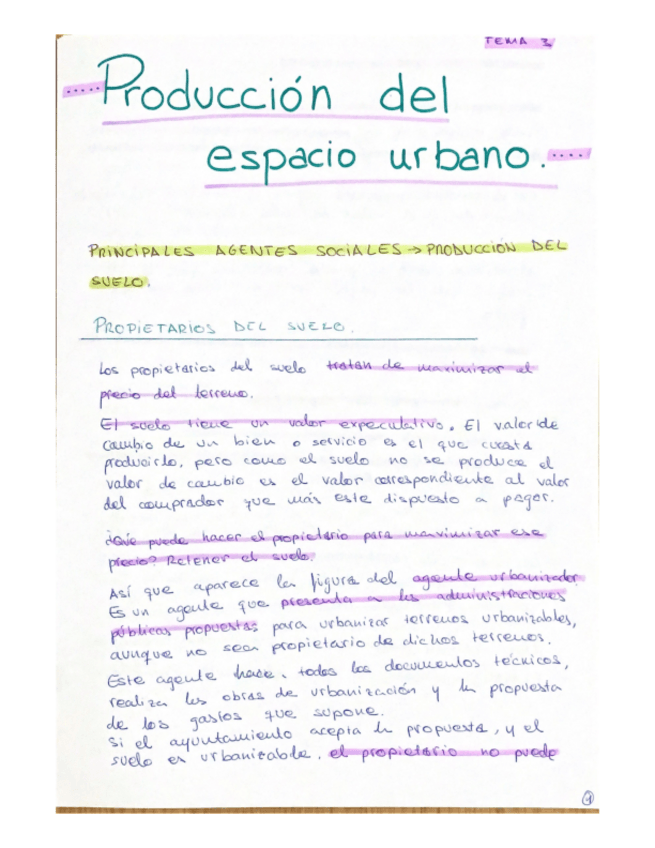 TEMA 3
Producción del
espacio urbano.
PRINCIPALES AGENTES SOCIALES → PRODUCCIÓN DEL
SUELO.
PROPIETARIOS DEL SUELO.
Los propietarios del suelo tratan de maximizar el
precio del terreno.
El suelo tiene un valor expeculativo. El valor de
cambio de un bien o servicio es el que cuesta
producirlo, pero como el suelo no se produce el
valor de cambio es el valor correspondiente al valor
del comprador que más este dispuesto a pagar.
¿Qué puede hacer el propietario para maximizar ese
precio? Retener el suelo.
Así que aparece la figura del agente urbanizador.
Es un agente que presenta a las administraciones
públicas propuestas para urbanizar terrenos urbanizables,
aunque no sean propietario de dichos terrenos.
Este agente hace, todos los documentos técnicos,
realiza las obras de urbanización y la propuesta
de los gastos que supone.
Si el ayuntamiento acepta la propuesta, y el
suelo es urbanizable, el propietario no puede
1